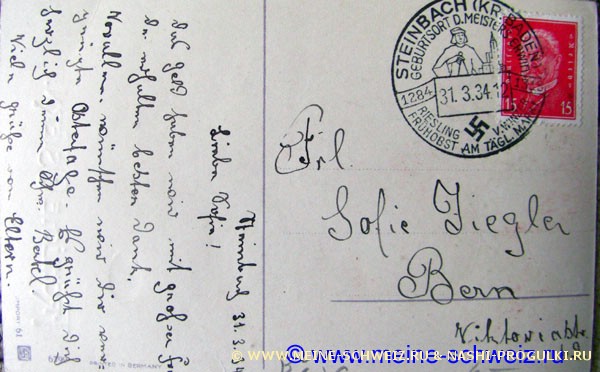 31.3.34
Liebe Sofie!
Das Geld haben wir mit großer
erhalten besten Dank.
Vor allem wünschen wir dir ver-
gnügte Ostertage. Es grüßt Dich
herzlich Deine Bertel
Viele Grüße von Eltern.
STEINBACH (KR. BADEN)
GEBURTSORT D. MEISTERS ERWIN
1284
31.3.34.12
RIESLING
FRÜHOBST AM TÄGL.
15 15
Frl.
Sofie Ziegler
Bern
PRINTED IN GERMANY
© www.meine-schweiz.ru
WWW.MEINE-SCHWEIZ.RU & NASHI-PROGULKI.RU